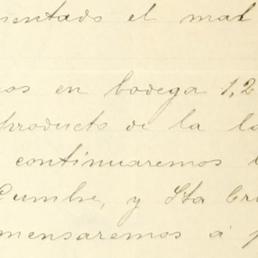 entado el mal
os en bodega 1,2
producto de la la
continuaremos
Cumbre, y Sta Cr
mensaremos á p